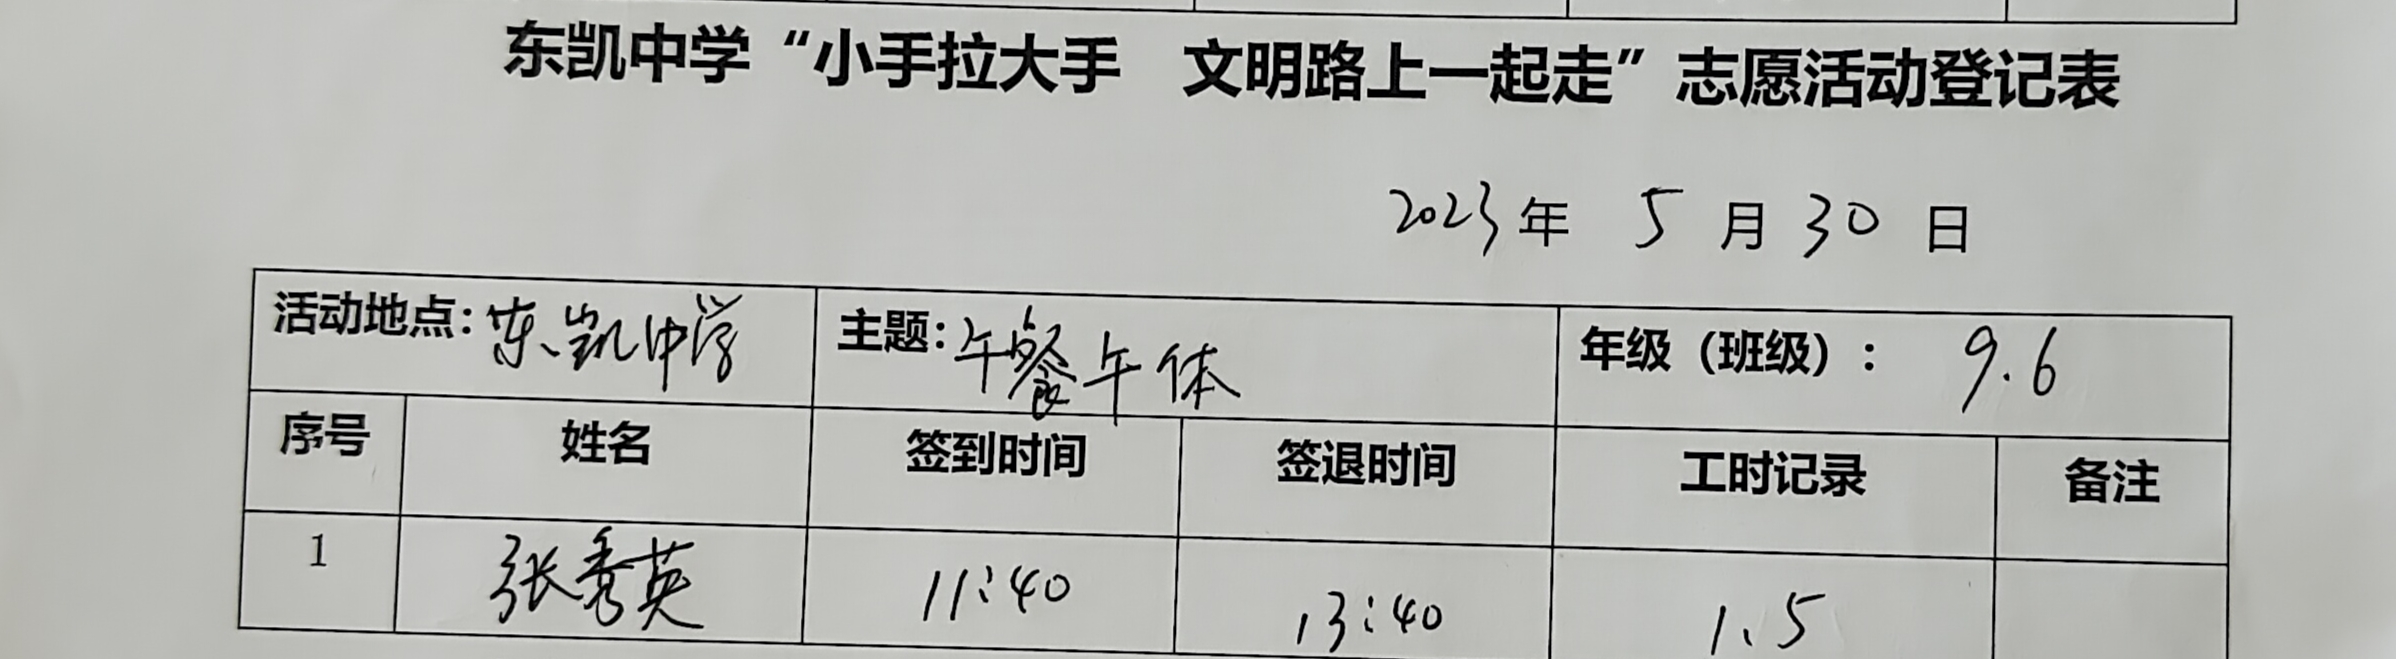 东凯中学“小手拉大手 文明路上一起走”志愿活动登记表
2023年 5 月 30 日
活动地点：东凯中学 主题：午餐午体 年级（班级）： 9.6
序号 姓名 签到时间 签退时间 工时记录 备注
1 张秀英 11:40 13:40 1.5